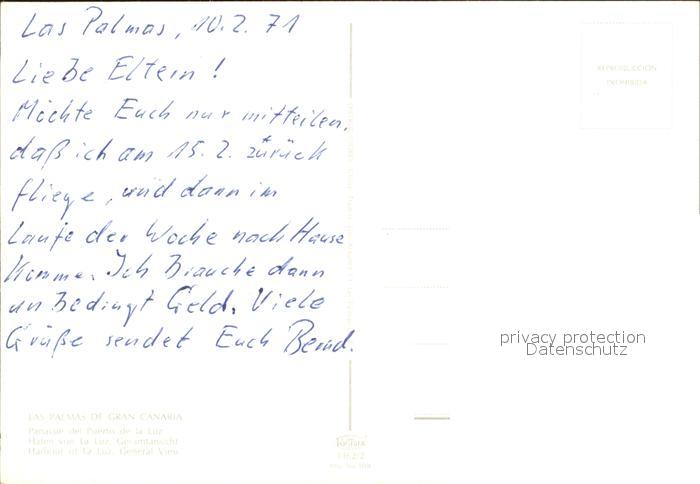 Las Palmas, 10.2.71
Liebe Eltern!
Möchte Euch nur mitteilen,
daß ich am 15.2. zurück
fliege, und dann im
Laufe der Woche nach Hause
Komme. Ich Brauche dann
unBedingt Geld. Viele
Grüße sendet Euch Bernd.
LAS PALMAS DE GRAN CANARIA
Puerto de la Luz
Hafen von La Luz, Gesamtansicht
Harbour of La Luz, General View
REPRODUCCION
PROHIBIDA
privacy protection
Datenschutz